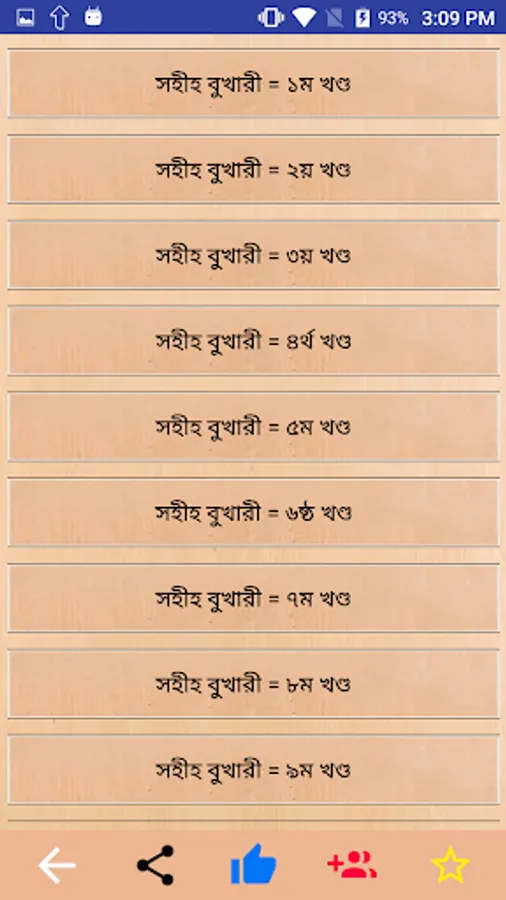 93% 3:09 PM
সহীহ বুখারী = ১ম খণ্ড
সহীহ বুখারী = ২য় খণ্ড
সহীহ বুখারী = ৩য় খণ্ড
সহীহ বুখারী = ৪র্থ খণ্ড
সহীহ বুখারী = ৫ম খণ্ড
সহীহ বুখারী = ৬ষ্ঠ খণ্ড
সহীহ বুখারী = ৭ম খণ্ড
সহীহ বুখারী = ৮ম খণ্ড
সহীহ বুখারী = ৯ম খণ্ড